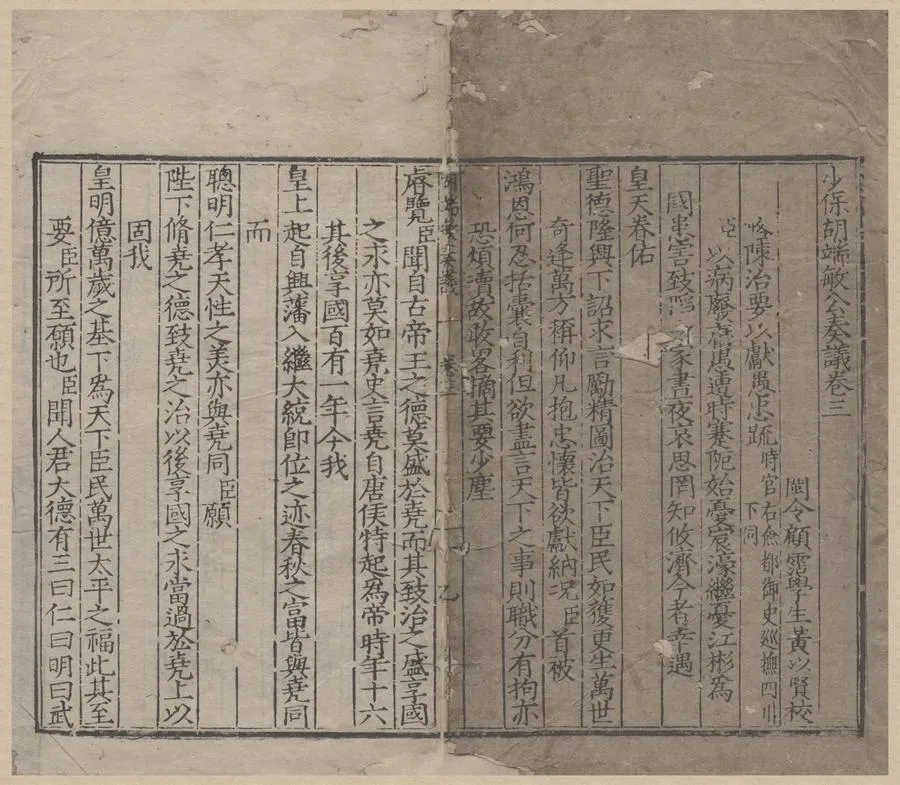 少保胡端敏公奏議卷三
閩令顧霑學生黃以賢校
略陳治要以獻愚忠疏 時官右僉都御史巡撫四川下同
臣以病廢 愚遭時蹇阨始憂宸濠繼憂江彬為
國患害致隕 家晝夜哀思罔知攸濟今者幸遇
皇天眷佑
聖德隆興下詔求言勵精圖治天下臣民如獲更生萬世
奇逢萬方稱仰凡抱忠懷皆欲獻納况臣首被
鴻恩何忍括囊自利但欲盡言天下之事則職分有拘亦
恐煩瀆故敢畧摘其要少塵
奏議 卷三
睿覽臣聞自古帝王之德莫盛於堯而其致治之盛享國
之永亦莫如堯史言堯自唐侯特起爲帝時年十六
其後享國百有一年今我
皇上起自興藩入繼大統即位之迹春秋之富皆與堯同
而
聰明仁孝天性之美亦與堯同臣願
陛下脩堯之德致堯之治以後享國之永當過於堯上以
固我
皇明億萬歲之基下爲天下臣民萬世太平之福此其至
要臣所至願也臣聞人君大德有三曰仁曰明曰武